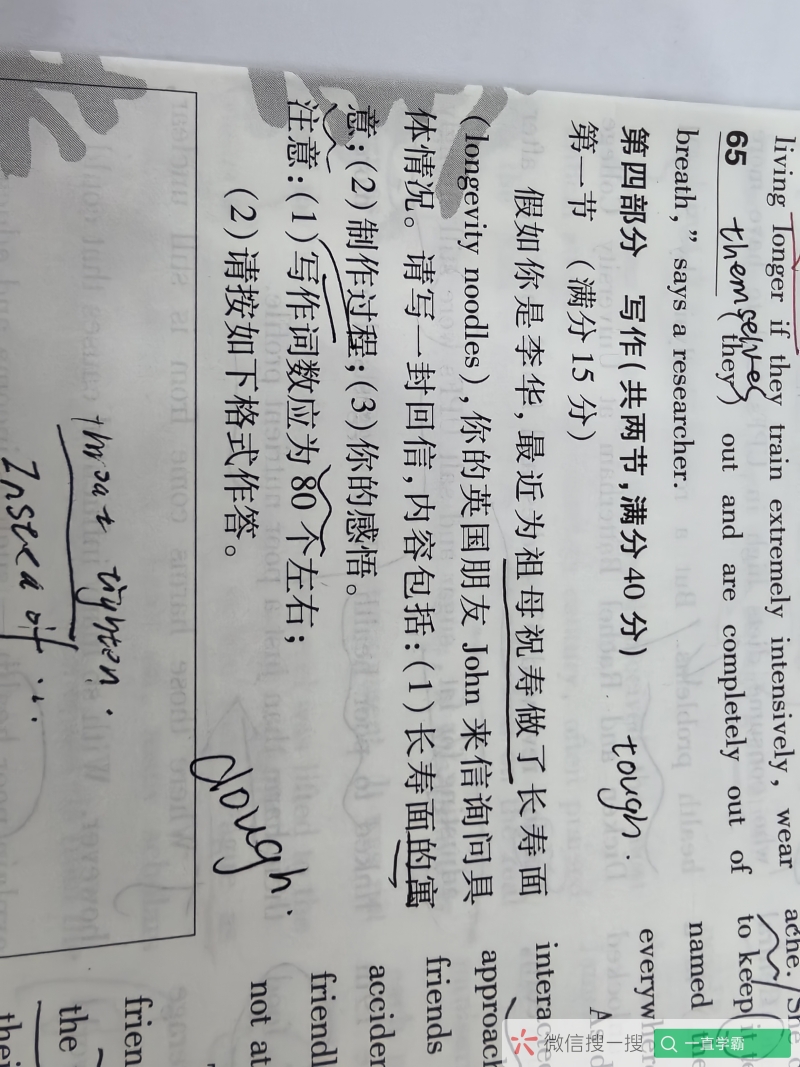 living longer if they train extremely intensively, wear
65 themselves (they) out and are completely out of
breath,” says a researcher.
第四部分 写作(共两节,满分 40 分)
tough.
第一节 (满分 15 分)
假如你是李华,最近为祖母祝寿做了长寿面
(longevity noodles),你的英国朋友 John 来信询问具
体情况。请写一封回信,内容包括:(1)长寿面的寓
意;(2)制作过程;(3)你的感悟。
注意:(1)写作词数应为 80 个左右;
(2)请按如下格式作答。
dough.
throat tighten.
Instead of ...
ache.
to keep
named
everyw
approach
friends
acciden
friendl
not at
frien
the
微信搜一搜
一直学霸